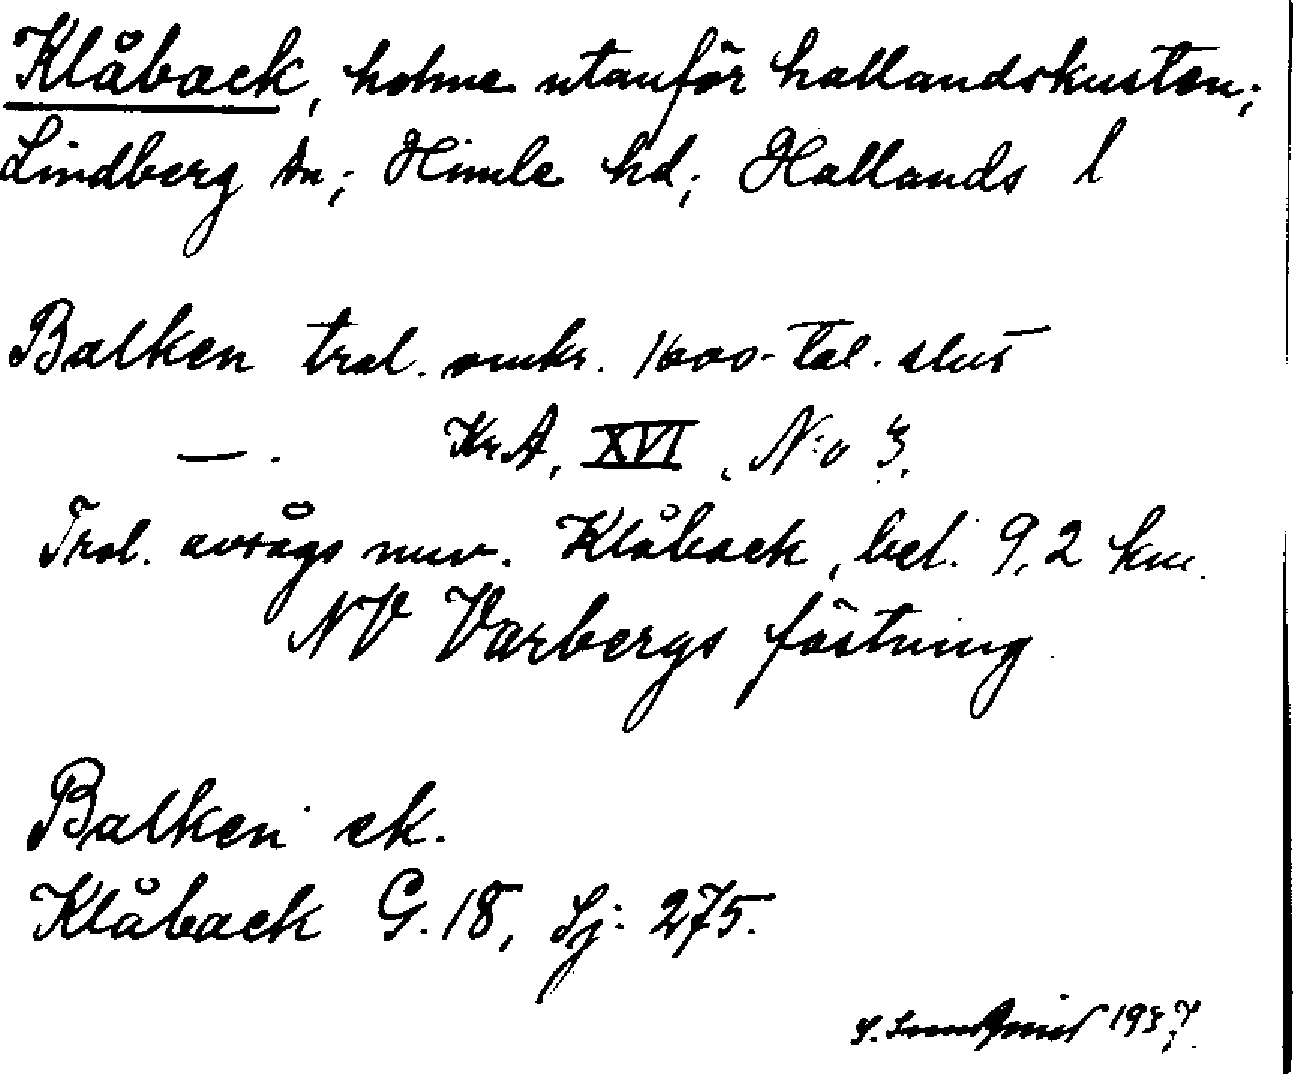 Klåback, holme utanför hallandskusten;
Lindberg sn; Himle hd; Hallands l
Balken trol. omkr. 1600-tal. slut
—. Kr.A, XVI, N:o 3.
Trol. avsågs nuv. Klåback, bel. 9,2 km.
NV Varbergs fästning
Balken ek.
Klåback G. 18, Sj: 275.
1937